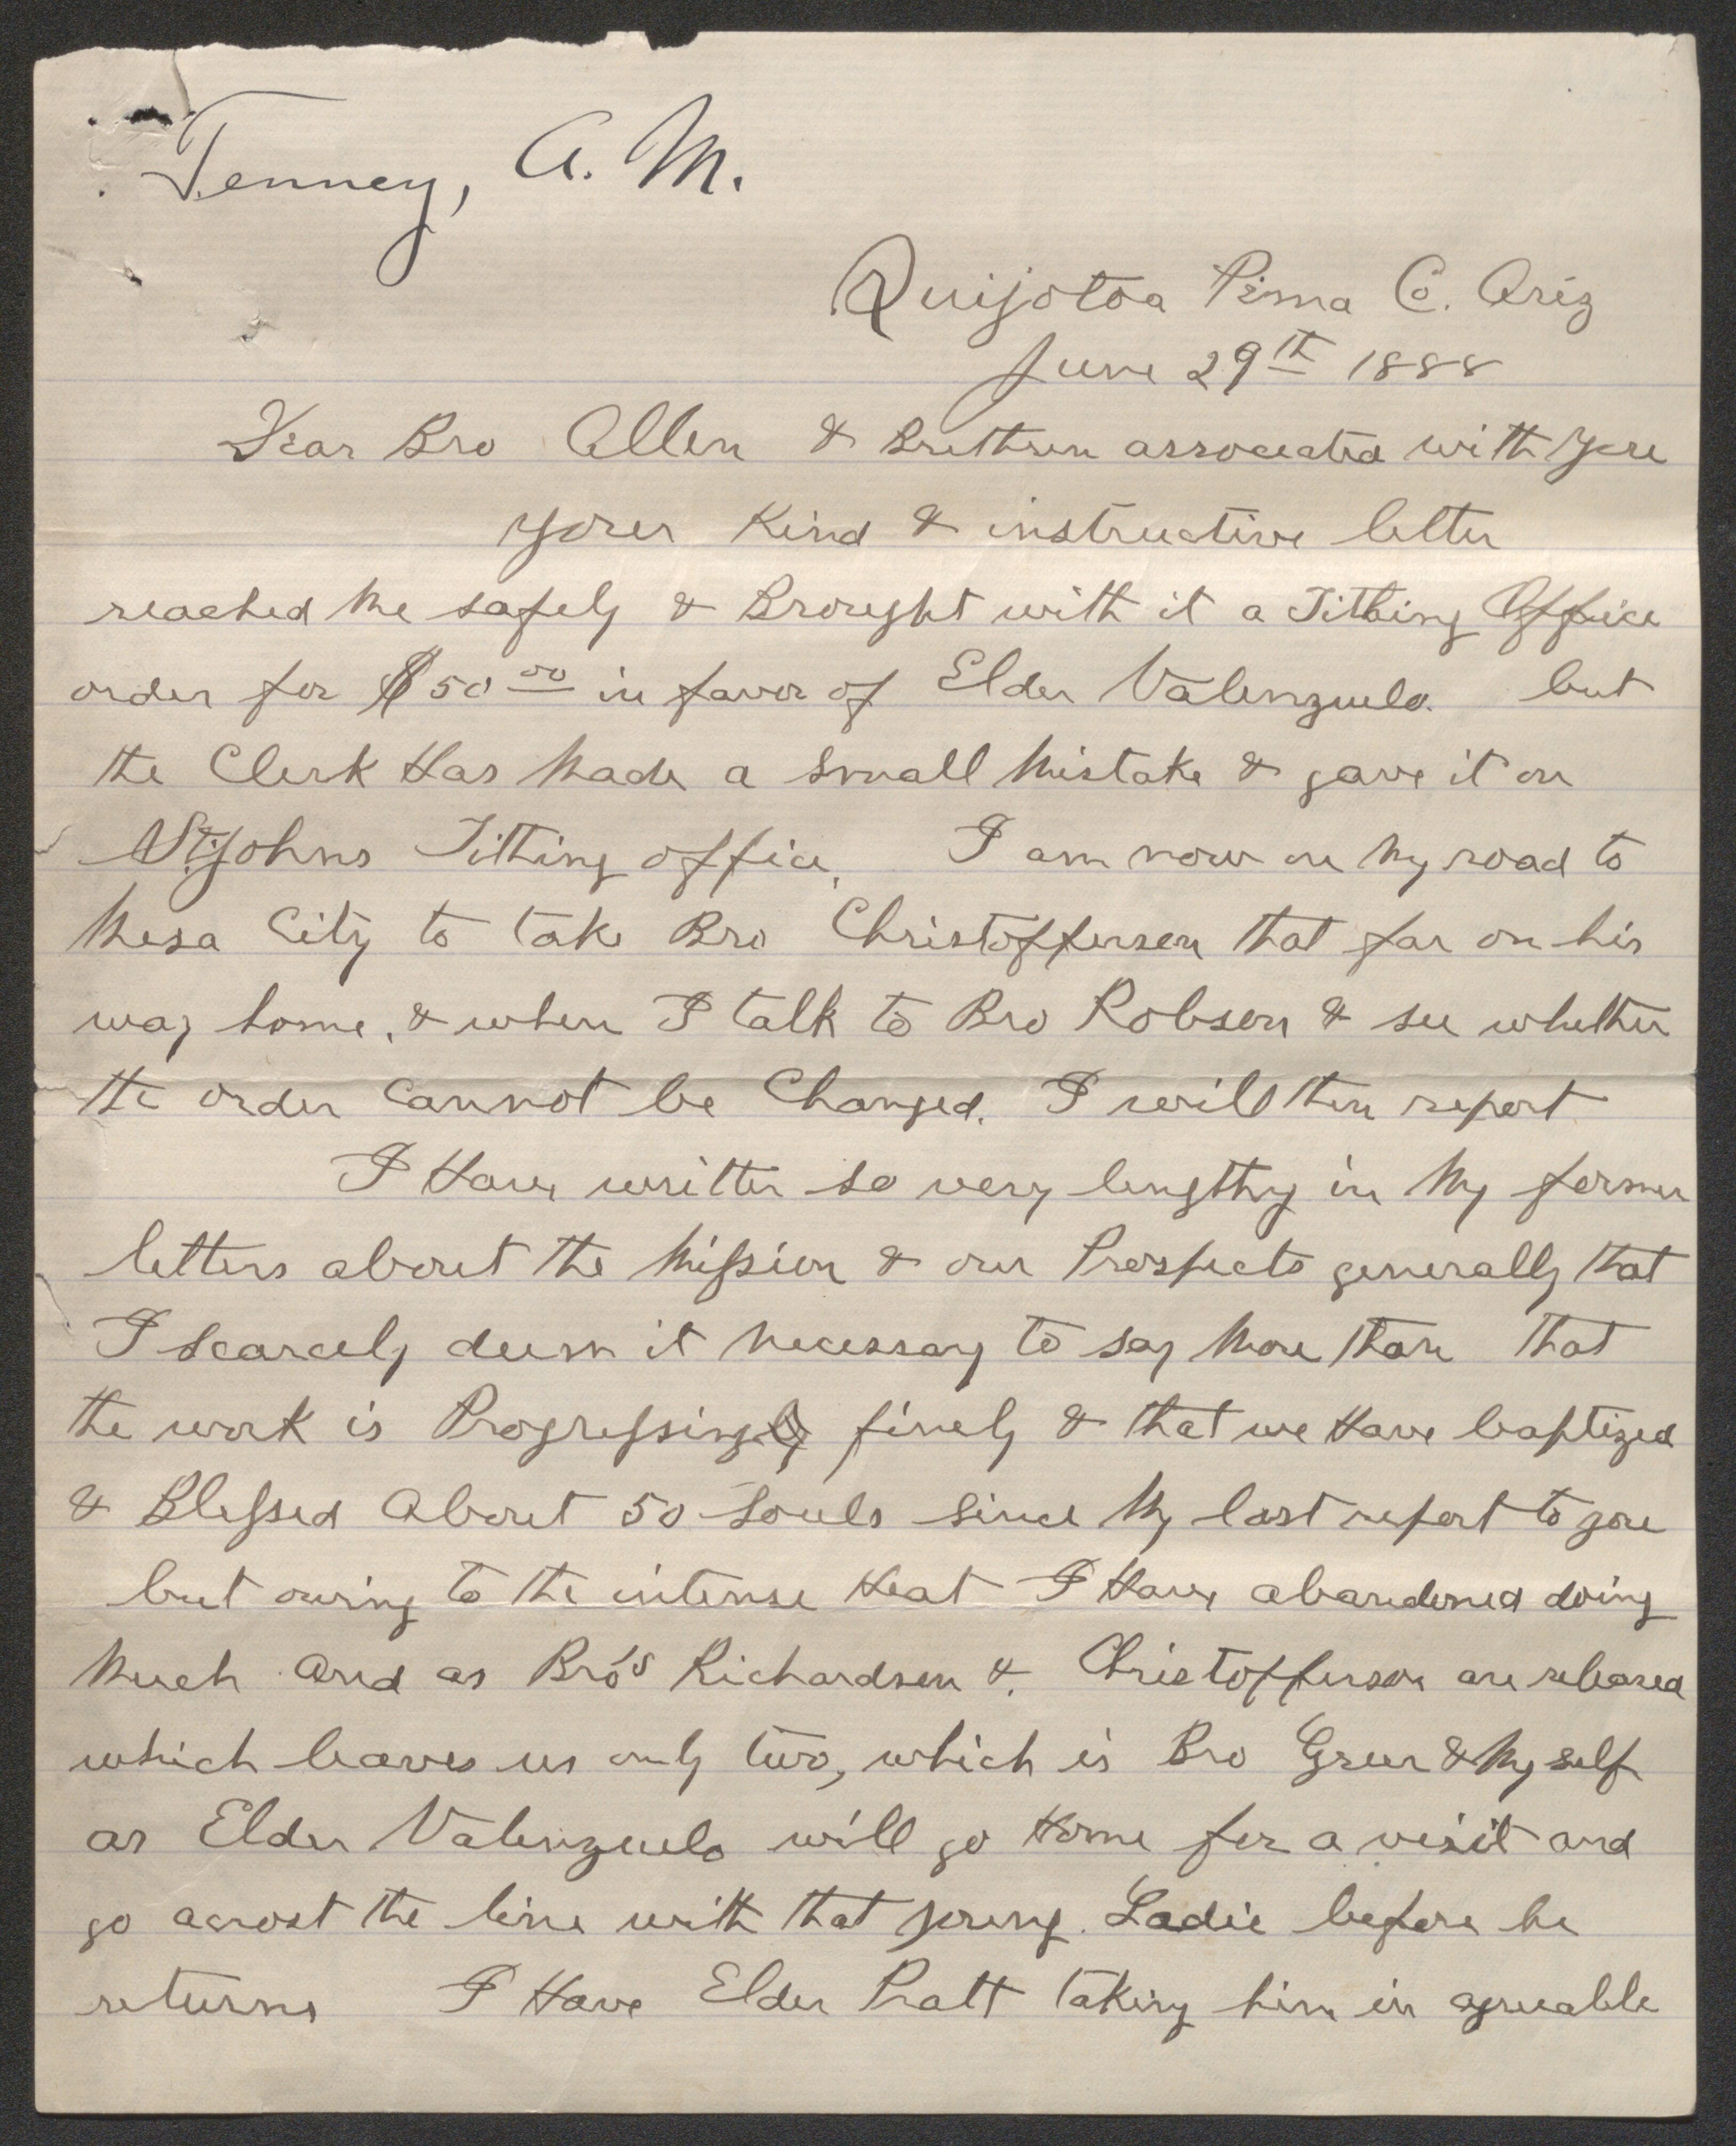 Tenney, A. M.
Quijotoa Pima Co. Ariz
June 29th 1888
Dear Bro Allen & Brethren associated with you
your Kind & instructive letter
reached Me safely & Brought with it a Tithing Office
order for $50 00 in favor of Elder Valenzuela. but
the Clerk Has Made a Small Mistake & gave it on
St Johns Tithing office, I am now on My road to
Mesa City to take Bro Christofferson that far on his
way home, & when I talk to Bro Robson & see whether
the order Cannot be Changed. I will then report
I Have written so very lengthy in My former
letters about the Mission & our Prospects generally that
I Scarcely deem it Necessary to say More than that
the work is Progressing finely & that we Have baptized
& Blessed About 50 Souls Since My last report to you
but owing to the intense Heat I Have abandoned doing
Much And as Bro's Richardson & Christofferson are released
which leaves us only two, which is Bro Greer & My self
as Elder Valenzuela will go Home for a visit and
go acrost the line with that young Ladie before he
returns I Have Elder Pratt taking him in agreeable